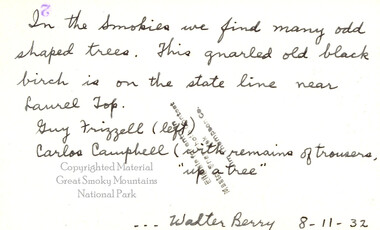 2
In the Smokies we find many odd
shaped trees. This gnarled old black
birch is on the state line near
Laurel Top.
Guy Frizzell (left)
Carlos Campbell (with remains of trousers,
"up a tree"
Copyrighted Material
Great Smoky Mountains
National Park
... Walter Berry 8-11-32